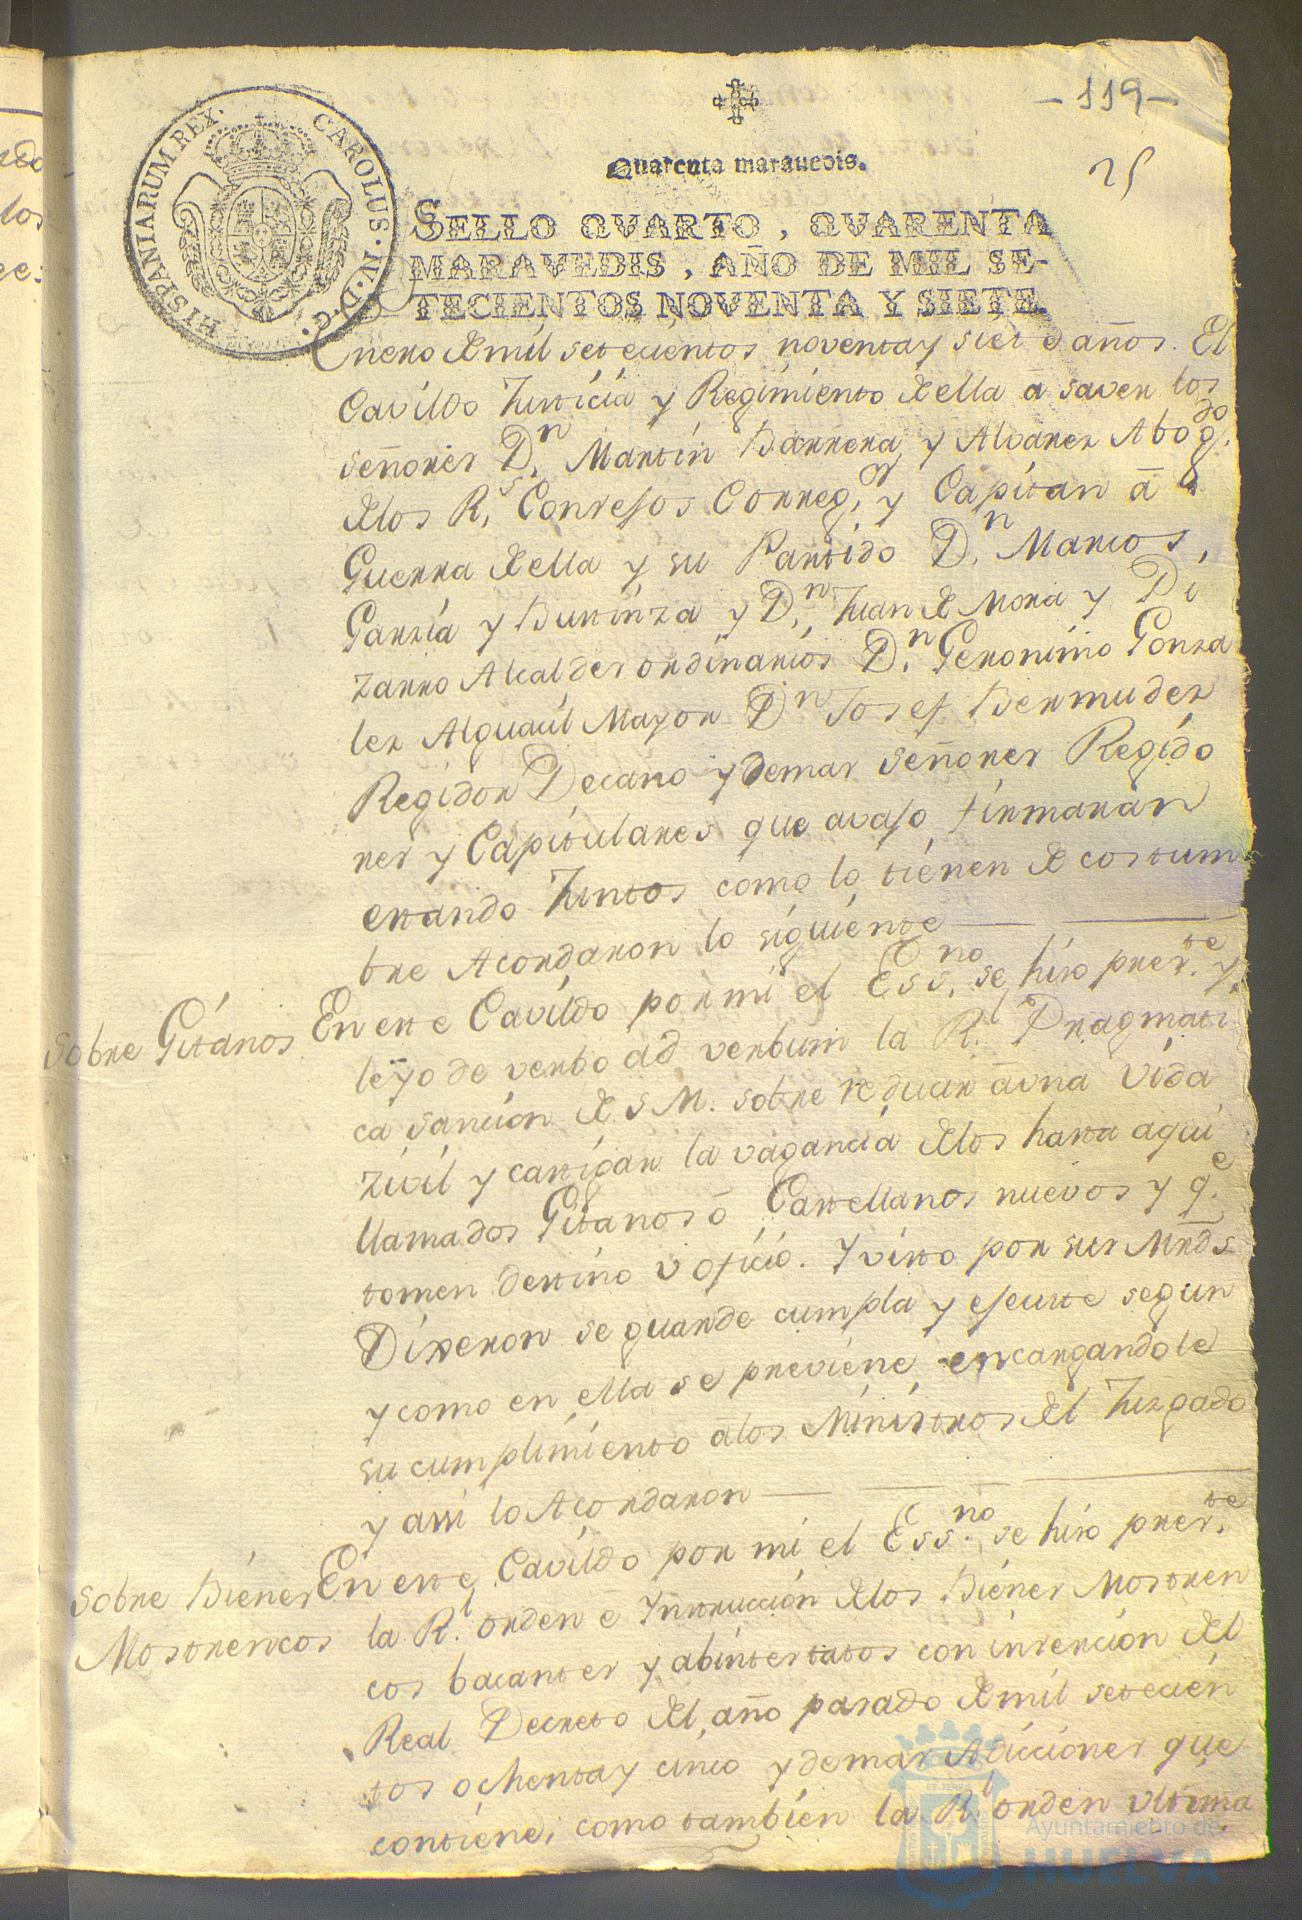 - 119 -
25
Quarenta maravedis.
HISPANIARUM REX. CAROLUS. IV. D. G.
SELLO QVARTO, QVARENTA
MARAVEDIS, AÑO DE MIL SE-
TECIENTOS NOVENTA Y SIETE.
Enero de mil setecientos noventa y siete años. El
Cavildo Justicia y Regimiento de ella â saver los
señores Dn. Martin Barrera y Alvarez Abogdo.
de los Rs. Consejos Corregor. y Capitan â
Guerra de ella y su Partido Dn. Marcos
Garzia y Burinza y Dn. Juan de Mora y Pi
zarro Alcaldes ordinarios Dn. Geronimo Gonza
lez Alguacil Mayor Dn Josef Bermudez
Regidor Decano y demas señores Regido
res y Capitulares que avajo firmaran
estando Juntos como lo tienen de costum
bre Acordaron lo siguiente
Sobre Gitanos
En este Cavildo por mi el Essno. se hizo preste. y
leyo de verbo ad verbum la Rl. Pragmati
ca sancion de S M. sobre reducir â una vida
zivil y castigar la vagancia de los hasta aqui
llamados Gitanos ô Castellanos nuevos y qe.
tomen destino u oficio. Y visto por sus Mrds
Dixeron se guarde cumpla y ejecute segun
y como en ella se previene encargandole
su cumplimiento a los Ministros del Juzgado
y assi lo Acordaron
Sobre Bienes
Mostrencos
En este Cavildo por mi el Essno. se hizo preste.
la Rl. orden e Ynstruccion de los Bienes Mostren
cos bacantes y abintestatos con insercion del
Real Decreto del año pasado de mil setecien
tos ochenta y cinco y demas Adicciones que
contiene, como tambien la Rl. orden ultima
Ayuntamiento de
HUELVA